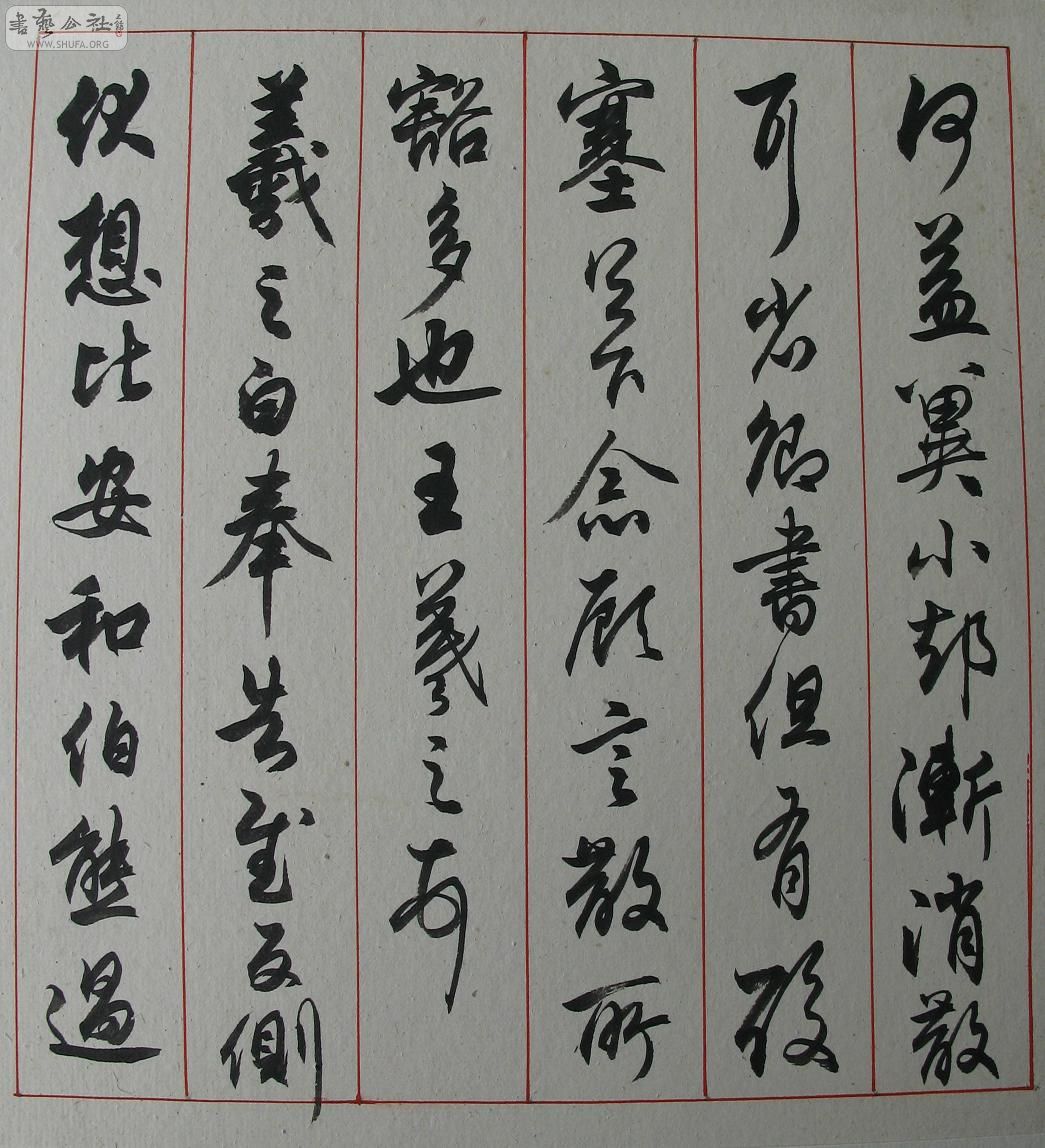 何益冀小却漸消散
耳省卿書但有酸
塞足下念顧言散所
豁多也王羲之
羲之白奉告慰反側
伏想比安和伯熊過
書藝公社
WWW.SHUFA.ORG